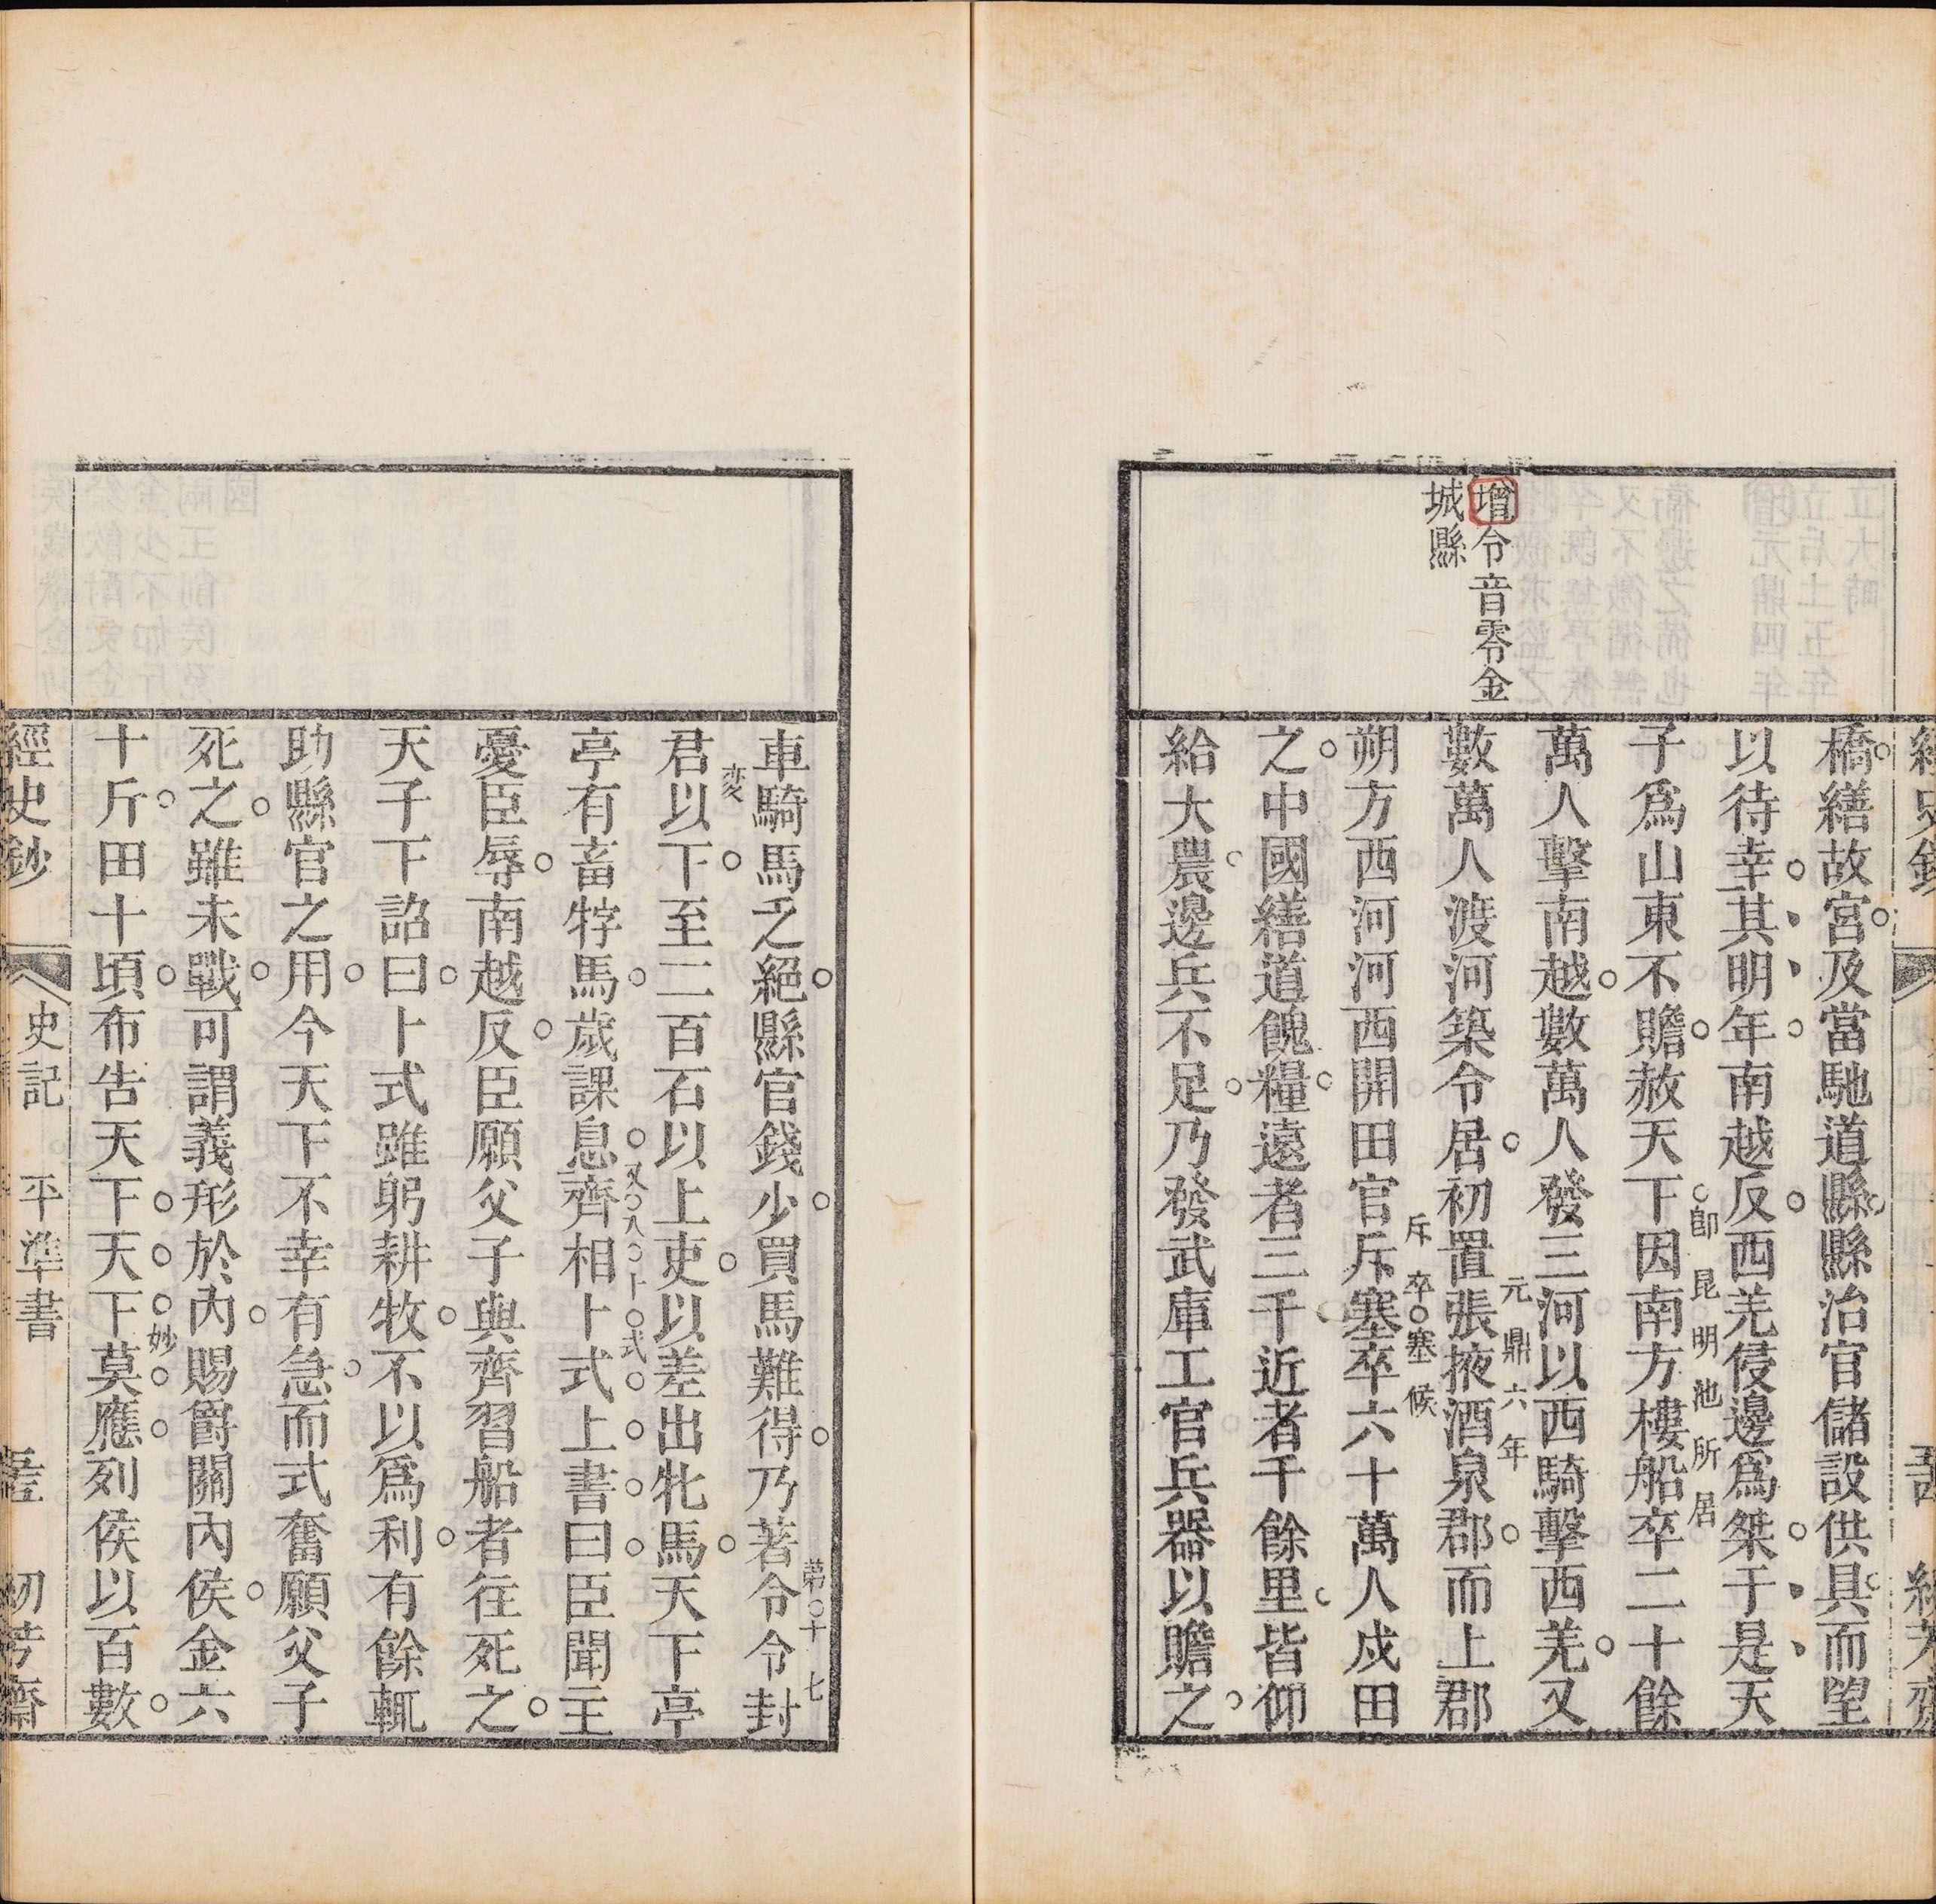 增令音零金
城縣
橋繕故宮及當馳道縣縣治官儲設供具而望
以待幸其明年南越反西羌侵邊爲桀于是天
子爲山東不贍赦天下因南方樓船卒二十餘
卽昆明池所居
萬人擊南越數萬人發三河以西騎擊西羌又
元鼎六年
數萬人渡河築令居初置張掖酒泉郡而上郡
斥卒塞候
朔方西河河西開田官斥塞卒六十萬人戍田
之中國繕道餽糧遠者三千近者千餘里皆仰
給大農邊兵不足乃發武庫工官兵器以贍之
第十七
車騎馬乏絕縣官錢少買馬難得乃著令令封
変
君以下至二百石以上吏以差出牝馬天下亭
又入卜式
亭有畜牸馬歲課息齊相卜式上書曰臣聞主
憂臣辱南越反臣願父子與齊習船者往死之
天子下詔曰卜式雖躬耕牧不以爲利有餘輒
助縣官之用今天下不幸有急而式奮願父子
死之雖未戰可謂義形於內賜爵關內侯金六
妙
十斤田十頃布告天下天下莫應列侯以百數
經史鈔 史記 平準書